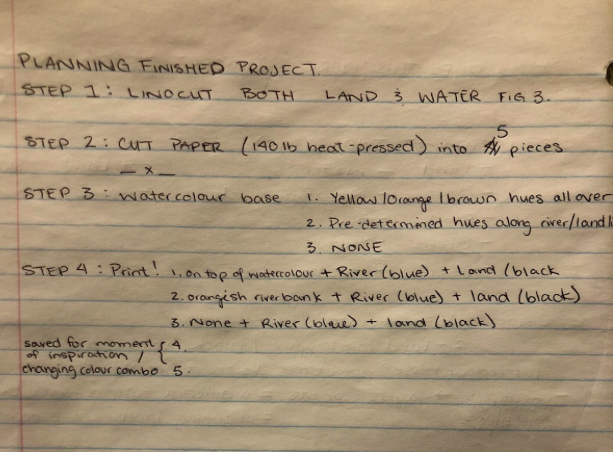 PLANNING FINISHED PROJECT.
STEP 1: LINOCUT BOTH LAND & WATER FIG 3.
STEP 2: CUT PAPER (140 lb heat-pressed) into 5 pieces
— x —
STEP 3: watercolour base 1. Yellow/orange/brown hues all over
2. Pre-determined hues along river/land
3. NONE
STEP 4: Print! 1. on top of watercolour + River (blue) + Land (black
2. orangish riverbank + River (blue) + land (black)
3. None + River (blue) + land (black)
saved for moment { 4.
of inspiration /
changing colour combo 5.